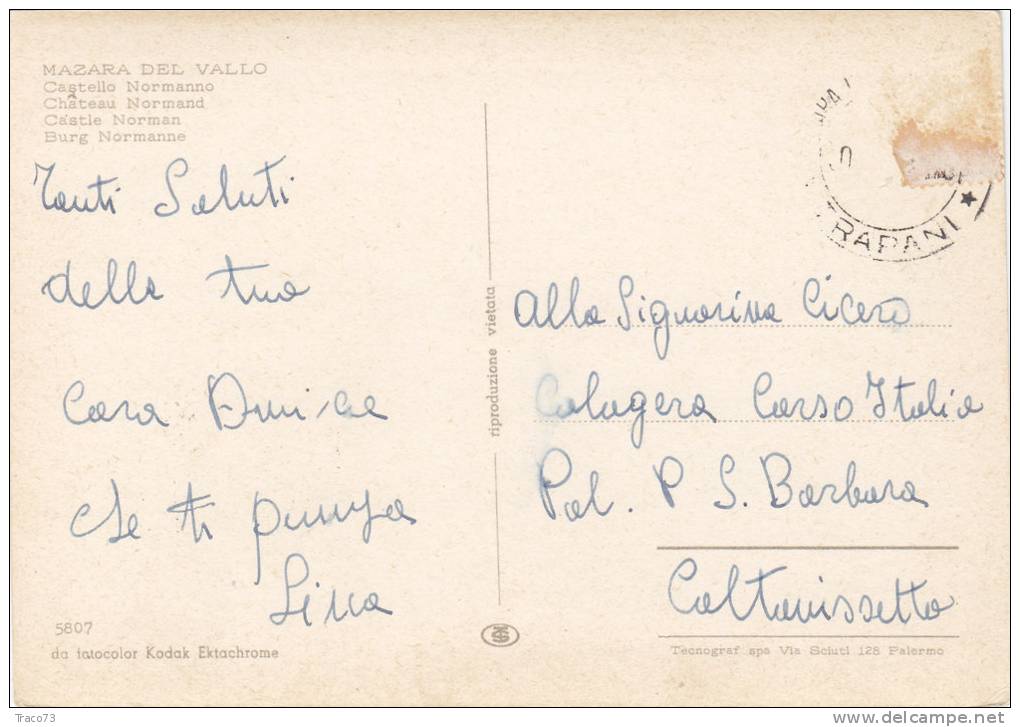 MAZARA DEL VALLO
Castello Normanno
Château Normand
Castle Norman
Burg Normanne
Tanti Saluti
della tua
Cara Amica
che ti pensa
Lina
5807
da fotocolor Kodak Ektachrome
riproduzione vietata
TRAPANI
Alla Signorina Cicero
Calogera Corso Italia
Pal. P S. Barbara
Caltanissetta
Tecnograf spa Via Sciuti 128 Palermo
Traco73
www.delcampe.net